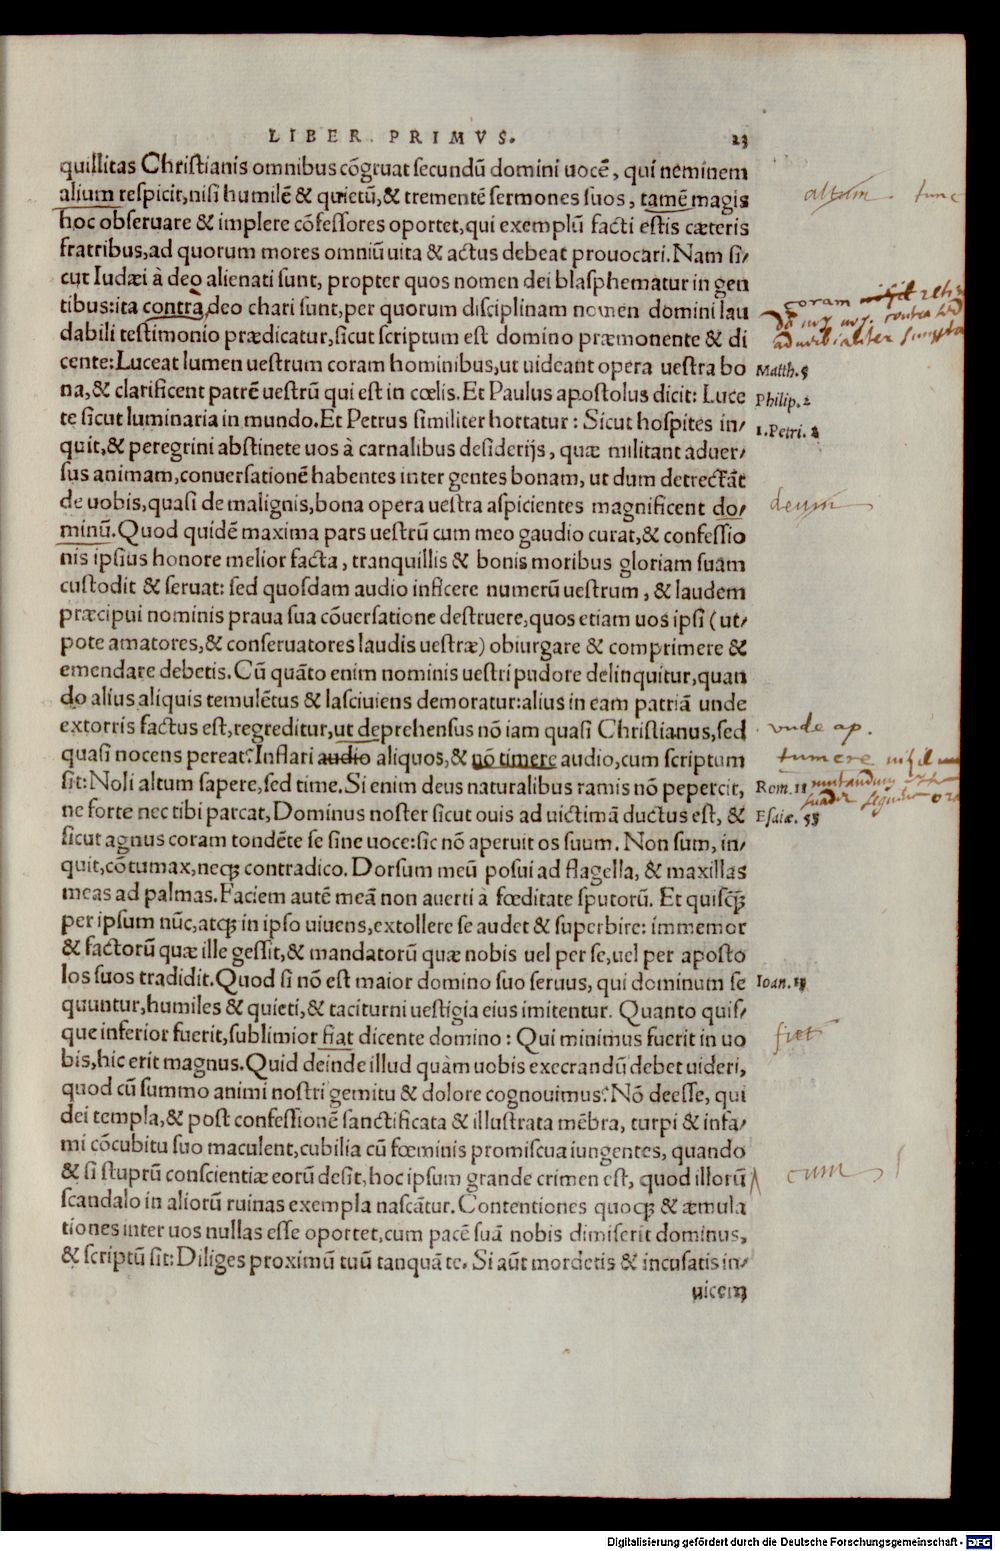 LIBER PRIMVS. 23
quillitas Christianis omnibus cõgruat secundũ domini uocẽ, qui neminem
alium respicit, nisi humilẽ & quietũ, & trementẽ sermones suos, tamẽ magis
altum tunc
hoc obseruare & implere cõfessores oportet, qui exemplũ facti estis cæteris
fratribus, ad quorum mores omniũ uita & actus debeat prouocari. Nam si/
cut Iudæi à deo alienati sunt, propter quos nomen dei blasphematur in gen
tibus: ita contra deo chari sunt, per quorum disciplinam nomen domini lau
coram
dabili testimonio prædicatur, sicut scriptum est domino præmonente & di
cente: Luceat lumen uestrum coram hominibus, ut uideant opera uestra bo
Matth. 5
na, & clarificent patrẽ uestrũ qui est in cœlis. Et Paulus apostolus dicit: Luce
Philip. 2
te sicut luminaria in mundo. Et Petrus similiter hortatur: Sicut hospites in/
1. Petri. 2
quit, & peregrini abstinete uos à carnalibus desiderijs, quæ militant aduer/
sus animam, conuersationẽ habentes inter gentes bonam, ut dum detrectãt
de uobis, quasi de malignis, bona opera uestra aspicientes magnificent do/
deum
minũ. Quod quidẽ maxima pars uestrũ cum meo gaudio curat, & confessio
nis ipsius honore melior facta, tranquillis & bonis moribus gloriam suam
custodit & seruat: sed quosdam audio inficere numerũ uestrum, & laudem
præcipui nominis praua sua cõuersatione destruere, quos etiam uos ipsi (ut/
pote amatores, & conseruatores laudis uestræ) obiurgare & comprimere &
emendare debetis. Cũ quãto enim nominis uestri pudore delinquitur, quan
do alius aliquis temulẽtus & lasciuiens demoratur: alius in eam patriã unde
extorris factus est, regreditur, ut deprehensus nõ iam quasi Christianus, sed
vnde ap.
quasi nocens pereat? Inflari audio aliquos, & nõ timere audio, cum scriptum
tumere
sit: Noli altum sapere, sed time. Si enim deus naturalibus ramis nõ pepercit,
Rom. 11
ne forte nec tibi parcat, Dominus noster sicut ouis ad uictimã ductus est, &
Esaiæ. 53
sicut agnus coram tondẽte se sine uoce: sic nõ aperuit os suum. Non sum, in/
quit, cõtumax, neq; contradico. Dorsum meũ posui ad flagella, & maxillas
meas ad palmas. Faciem autẽ meã non auerti à fœditate sputorũ. Et quisq̃;
per ipsum nũc, atq; in ipso uiuens, extollere se audet & superbire: immemor
& factorũ quæ ille gessit, & mandatorũ quæ nobis uel per se, uel per aposto
los suos tradidit. Quod si nõ est maior domino suo seruus, qui dominum se
Ioan. 13
quuntur, humiles & quieti, & taciturni uestigia eius imitentur. Quanto quis/
que inferior fuerit, sublimior fiat dicente domino: Qui minimus fuerit in uo
fiet
bis, hic erit magnus. Quid deinde illud quàm uobis execrandũ debet uideri,
quod cũ summo animi nostri gemitu & dolore cognouimus? Nõ deesse, qui
dei templa, & post confessionẽ sanctificata & illustrata mẽbra, turpi & infa/
mi cõcubitu suo maculent, cubilia cũ fœminis promiscua iungentes, quando
& si stuprũ conscientiæ eorũ desit, hoc ipsum grande crimen est, quod illorũ
cum
scandalo in aliorũ ruinas exempla nascãtur. Contentiones quoq; & æmula
tiones inter uos nullas esse oportet, cum pacẽ suã nobis dimiserit dominus,
& scriptũ sit: Diliges proximũ tuũ tanquã te. Si aũt mordetis & incusatis in/
uicem
Digitalisierung gefördert durch die Deutsche Forschungsgemeinschaft - DFG